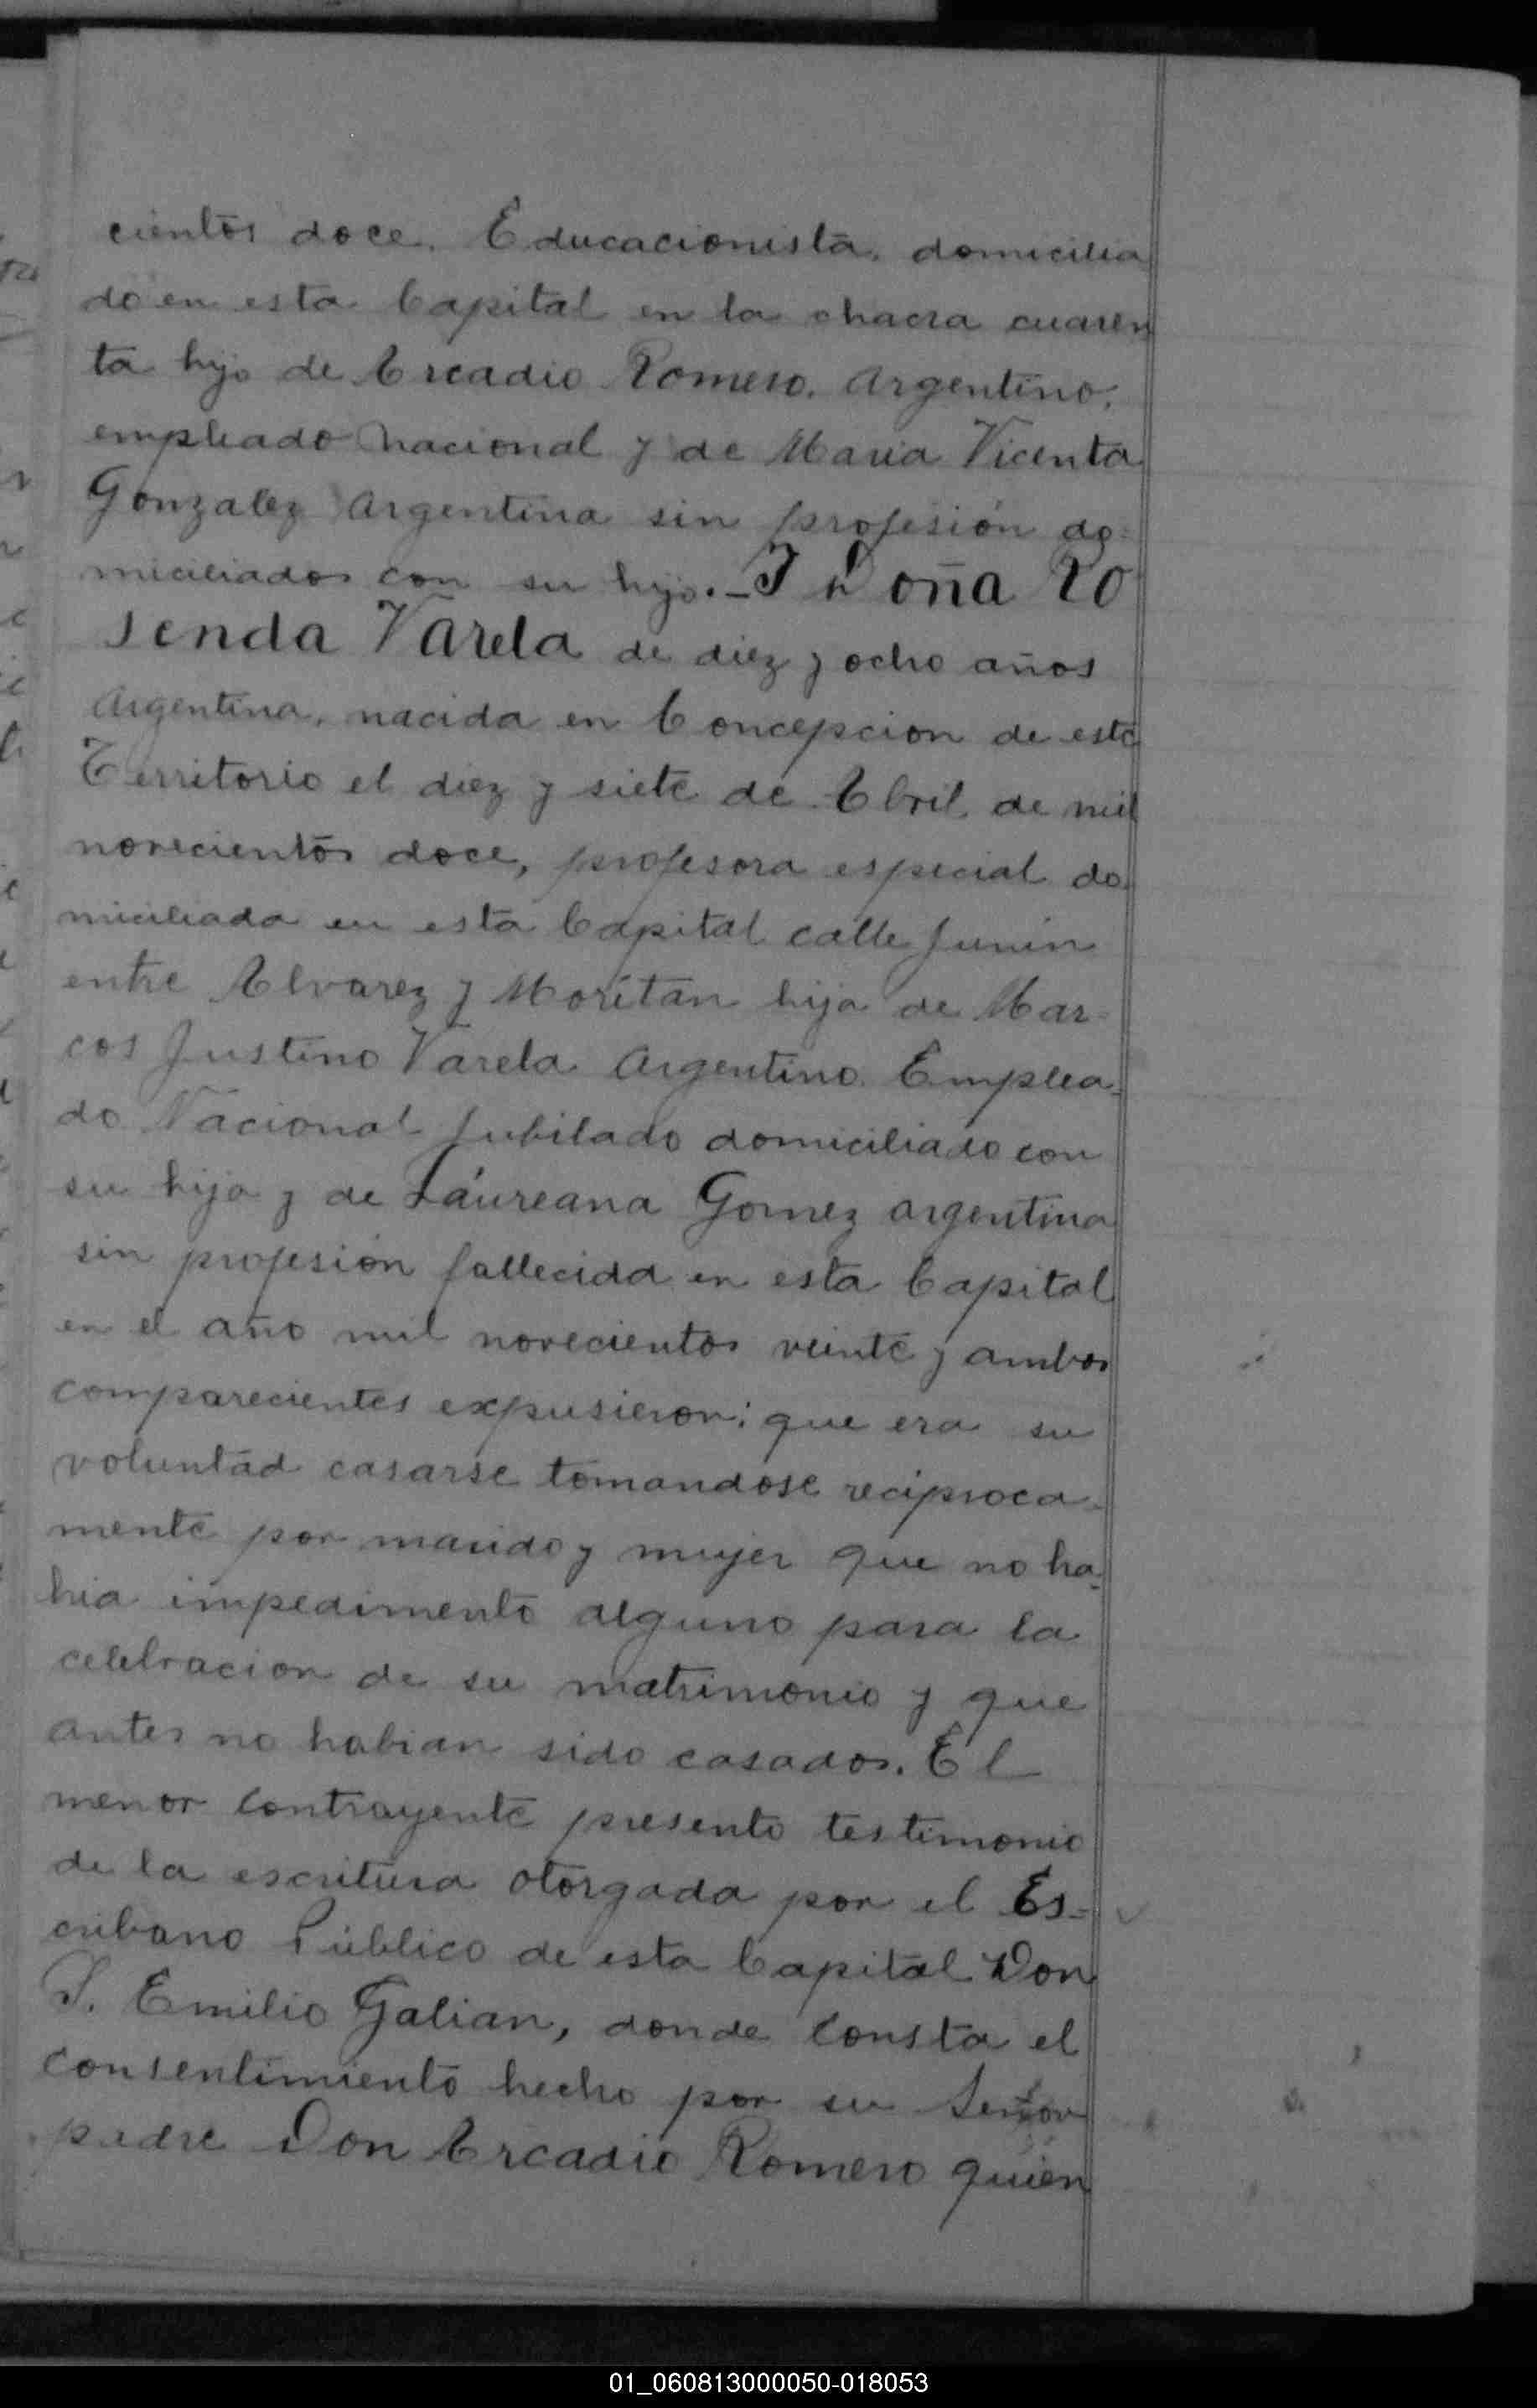 cientos doce. Educacionista, domicilia
do en esta Capital en la chacra cuaren
ta hijo de Arcadio Romero. Argentino.
empleado nacional y de Maria Vicenta
Gonzalez Argentina sin profesión do=
miciliados con su hijo. _ Y Doña Ro
senda Varela de diez y ocho años
Argentina, nacida en Concepcion de este
Territorio el diez y siete de Abril de mil
novecientos doce, profesora especial do
miciliada en esta Capital calle Junin
entre Alvarez y Moritan hija de Mar=
cos Justino Varela Argentino. Emplea=
do Nacional Jubilado domiciliado con
su hija y de Laureana Gomez argentina
sin profesión fallecida en esta Capital
en el año mil novecientos veinte y ambos
comparecientes expusieron: que era su
voluntad casarse tomandose reciproca=
mente por marido y mujer que no ha=
bia impedimento alguno para la
celebracion de su matrimonio y que
antes no habian sido casados. El
menor contrayente presento testimonio
de la escritura otorgada por el Es=
cribano Público de esta Capital Don
S. Emilio Galian, donde consta el
consentimiento hecho por su Señor
padre Don Arcadio Romero quien
01_060813000050-018053